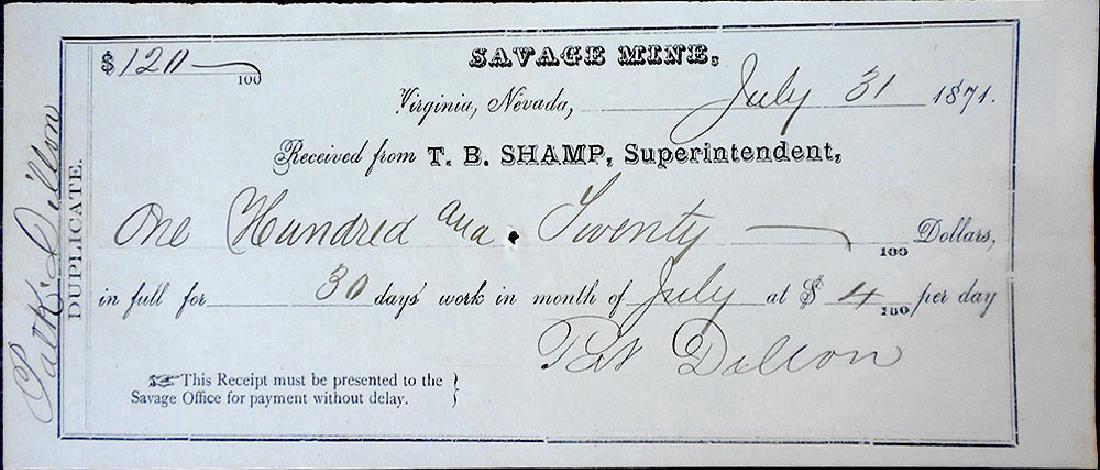 SAVAGE MINE,
$120 —/100
Virginia, Nevada, July 31 1871.
Received from T. B. SHAMP, Superintendent,
One Hundred and Twenty —/100 Dollars,
in full for 30 days' work in month of July at $ 4 /100 per day
Pat Dillon
This Receipt must be presented to the
Savage Office for payment without delay.
DUPLICATE.
Patk. Dillon